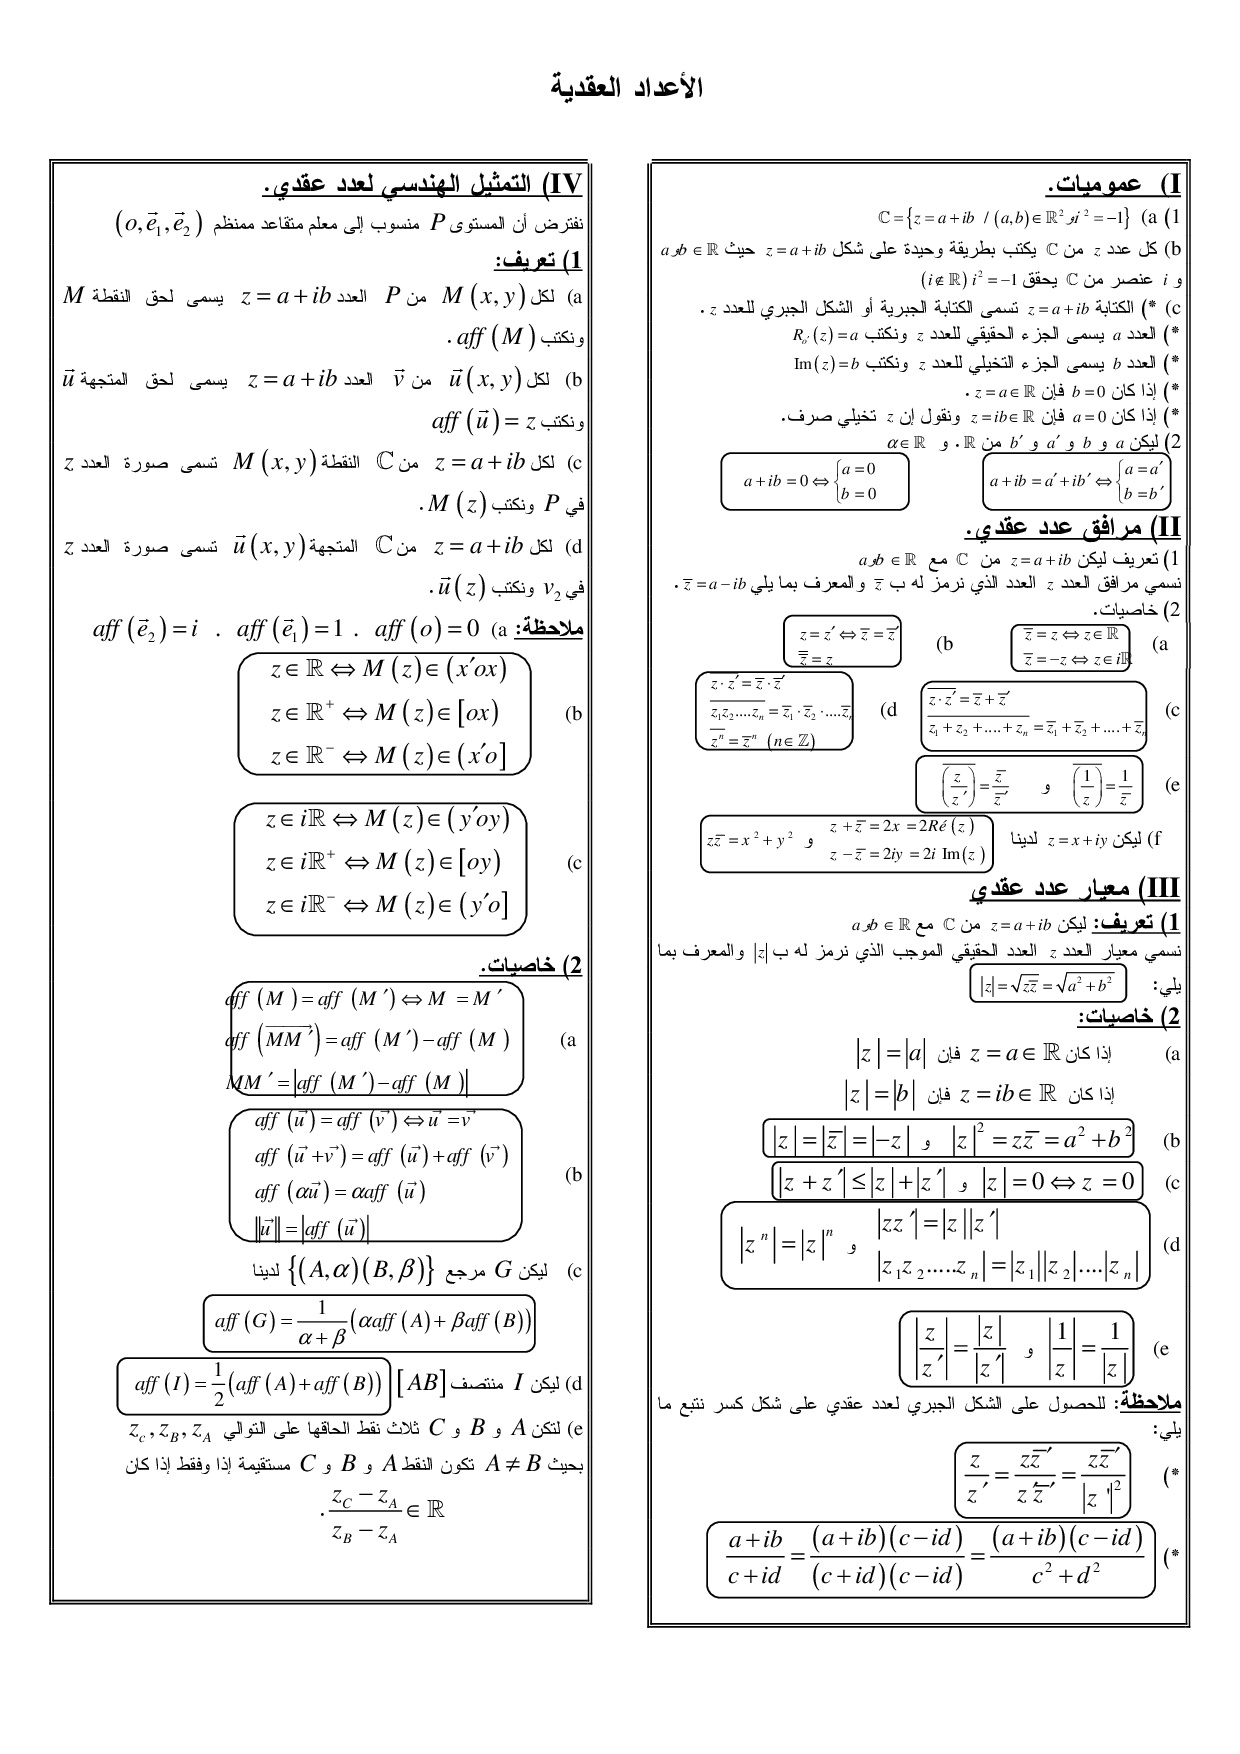 الأعداد العقدية
I) عموميات.
1) a) ℂ = {z = a + ib / (a,b) ∈ ℝ² و i² = −1}
b) كل عدد z من ℂ يكتب بطريقة وحيدة على شكل z = a + ib حيث a و b ∈ ℝ
و i عنصر من ℂ يحقق i² = −1 (i ∉ ℝ)
c) *) الكتابة z = a + ib تسمى الكتابة الجبرية أو الشكل الجبري للعدد z .
*) العدد a يسمى الجزء الحقيقي للعدد z ونكتب Re(z) = a
*) العدد b يسمى الجزء التخيلي للعدد z ونكتب Im(z) = b
*) إذا كان b = 0 فإن z = a ∈ ℝ .
*) إذا كان a = 0 فإن z = ib ∈ ℝ ونقول إن z تخيلي صرف.
2) ليكن a و b و a′ و b′ من ℝ . و α ∈ ℝ
a + ib = a′ + ib′ ⇔ {a = a′ ; b = b′
a + ib = 0 ⇔ {a = 0 ; b = 0
II) مرافق عدد عقدي.
1) تعريف ليكن z = a + ib من ℂ مع a و b ∈ ℝ
نسمي مرافق العدد z العدد الذي نرمز له ب z̅ والمعرف بما يلي z̅ = a − ib .
2) خاصيات.
a) z̅ = z ⇔ z ∈ ℝ
z̅ = −z ⇔ z ∈ iℝ
b) z = z′ ⇔ z̅ = z̅′
z̿ = z
c) \overline{z · z′} = z̅ + z̅′
\overline{z₁ + z₂ + .... + zₙ} = z̅₁ + z̅₂ + .... + z̅ₙ
d) \overline{z · z′} = z̅ · z̅′
\overline{z₁z₂....zₙ} = z̅₁ · z̅₂ · ....z̅ₙ
\overline{zⁿ} = z̅ⁿ (n ∈ ℤ)
e) \overline{(1/z)} = 1/z̅ و \overline{(z/z′)} = z̅/z̅′
f) ليكن z = x + iy لدينا z + z̅ = 2x = 2Ré(z) و zz̅ = x² + y²
z − z̅ = 2iy = 2i Im(z)
III) معيار عدد عقدي
1) تعريف: ليكن z = a + ib من ℂ مع a و b ∈ ℝ
نسمي معيار العدد z العدد الحقيقي الموجب الذي نرمز له ب |z| والمعرف بما
يلي: |z| = √(zz̅) = √(a² + b²)
2) خاصيات:
a) إذا كان z = a ∈ ℝ فإن |z| = |a|
إذا كان z = ib ∈ ℝ فإن |z| = |b|
b) |z|² = zz̅ = a² + b² و |z| = |z̅| = |−z|
c) |z| = 0 ⇔ z = 0 و |z + z′| ≤ |z| + |z′|
d) |zz′| = |z||z′| و |zⁿ| = |z|ⁿ
|z₁z₂.....zₙ| = |z₁||z₂|....|zₙ|
e) |1/z| = 1/|z| و |z/z′| = |z|/|z′|
ملاحظة: للحصول على الشكل الجبري لعدد عقدي على شكل كسر نتبع ما
يلي:
*) z/z′ = zz̅′/z′z̅′ = zz̅′/|z′|²
*) (a+ib)/(c+id) = (a+ib)(c−id)/(c+id)(c−id) = (a+ib)(c−id)/(c²+d²)
IV) التمثيل الهندسي لعدد عقدي.
نفترض أن المستوى P منسوب إلى معلم متقاعد ممنظم (o, e⃗₁, e⃗₂)
1) تعريف:
a) لكل M(x, y) من P العدد z = a + ib يسمى لحق النقطة M
ونكتب aff(M) .
b) لكل u⃗(x, y) من v⃗ العدد z = a + ib يسمى لحق المتجهة u⃗
ونكتب aff(u⃗) = z
c) لكل z = a + ib من ℂ النقطة M(x, y) تسمى صورة العدد z
في P ونكتب M(z) .
d) لكل z = a + ib من ℂ المتجهة u⃗(x, y) تسمى صورة العدد z
في v₂ ونكتب u⃗(z) .
ملاحظة: a) aff(o) = 0 . aff(e⃗₁) = 1 . aff(e⃗₂) = i
b) z ∈ ℝ ⇔ M(z) ∈ (x′ox)
z ∈ ℝ⁺ ⇔ M(z) ∈ [ox)
z ∈ ℝ⁻ ⇔ M(z) ∈ (x′o]
c) z ∈ iℝ ⇔ M(z) ∈ (y′oy)
z ∈ iℝ⁺ ⇔ M(z) ∈ [oy)
z ∈ iℝ⁻ ⇔ M(z) ∈ (y′o]
2) خاصيات.
a) aff(M) = aff(M′) ⇔ M = M′
aff(\overrightarrow{MM′}) = aff(M′) − aff(M)
MM′ = |aff(M′) − aff(M)|
b) aff(u⃗) = aff(v⃗) ⇔ u⃗ = v⃗
aff(u⃗ + v⃗) = aff(u⃗) + aff(v⃗)
aff(αu⃗) = αaff(u⃗)
‖u⃗‖ = |aff(u⃗)|
c) ليكن G مرجع {(A,α)(B,β)} لدينا
aff(G) = 1/(α+β) (αaff(A) + βaff(B))
d) ليكن I منتصف [AB] aff(I) = 1/2 (aff(A) + aff(B))
e) لتكن A و B و C ثلاث نقط الحاقها على التوالي z_c , z_B , z_A
بحيث A ≠ B تكون النقط A و B و C مستقيمة إذا وفقط إذا كان
(z_C − z_A)/(z_B − z_A) ∈ ℝ .